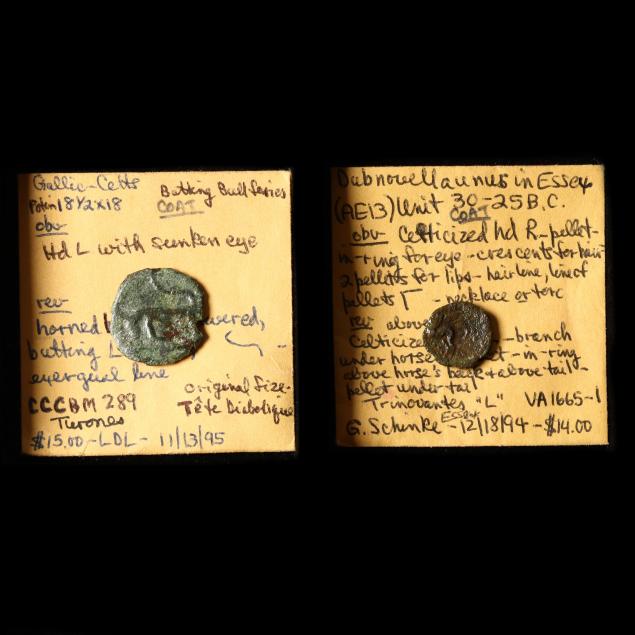 Gallic-Celts
Butting Bull Series
Potin 18 1/2 x 18
COAT
obv
Hd L with sunken eye
rev
horned
wered,
butting L
exergual line
original size-
CCCBM 289
Tête Diabolique
Turones
$15.00-LDL- 11/13/95
Dubnovellaunus in Essex
(AE13) Unit 30-25 B.C.
COAT
obv Celticized hd R-pellet-
in-ring for eye-crescents for hair
2 pellets for lips-hairline, line of
pellets - necklace or torc
rev above
Celticized -branch
under horse -in-ring
above horse's back & above tail-
pellet under tail
Trinovantes "L" VA1665-1
Essex
G. Schenke -12/18/94-$14.00